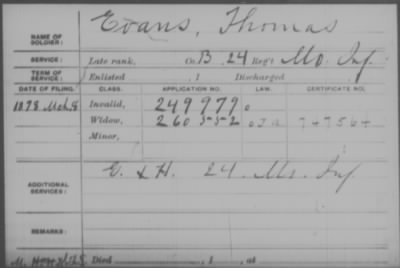 NAME OF SOLDIER: Evans, Thomas
SERVICE: Late rank, Co. B, 24 Reg't Mo. Inf.
TERM OF SERVICE: Enlisted , 1 Discharged , 1
DATE OF FILING. CLASS. APPLICATION NO. LAW. CERTIFICATE NO.
1878 Mch 8 Invalid, 249979
Widow, 260552 747564
Minor,
ADDITIONAL SERVICES: E. & H. 24 Mo. Inf
REMARKS:
Died , 1 , at